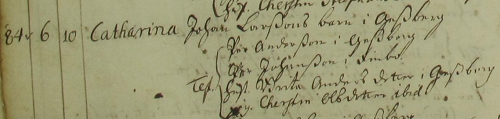 Pig. Cherstin
84 6 10 Catharina Johan Larssons barn i Gessberg
Per Andersson i Gessberg
Per Johansson i Finbo
Test. Hust. Brita Anders dotter i Gessberg
Pig. Cherstin Olsdotter ibid